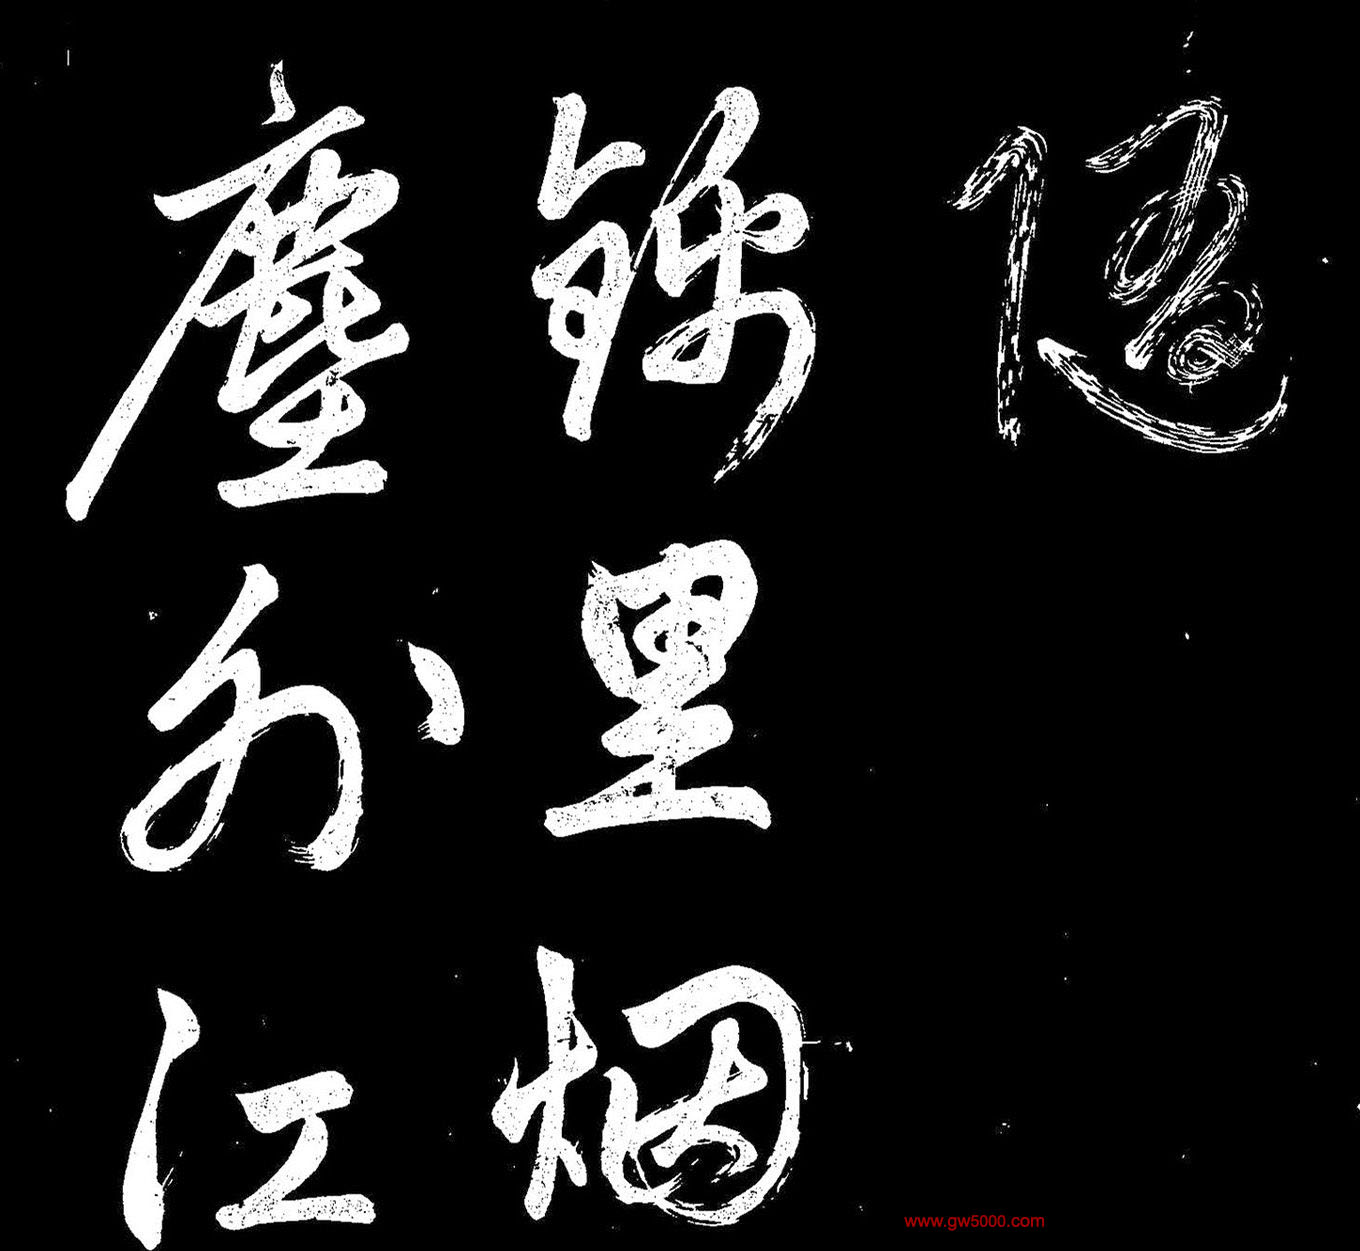 隨
錦里烟
塵外江
www.gw5000.com